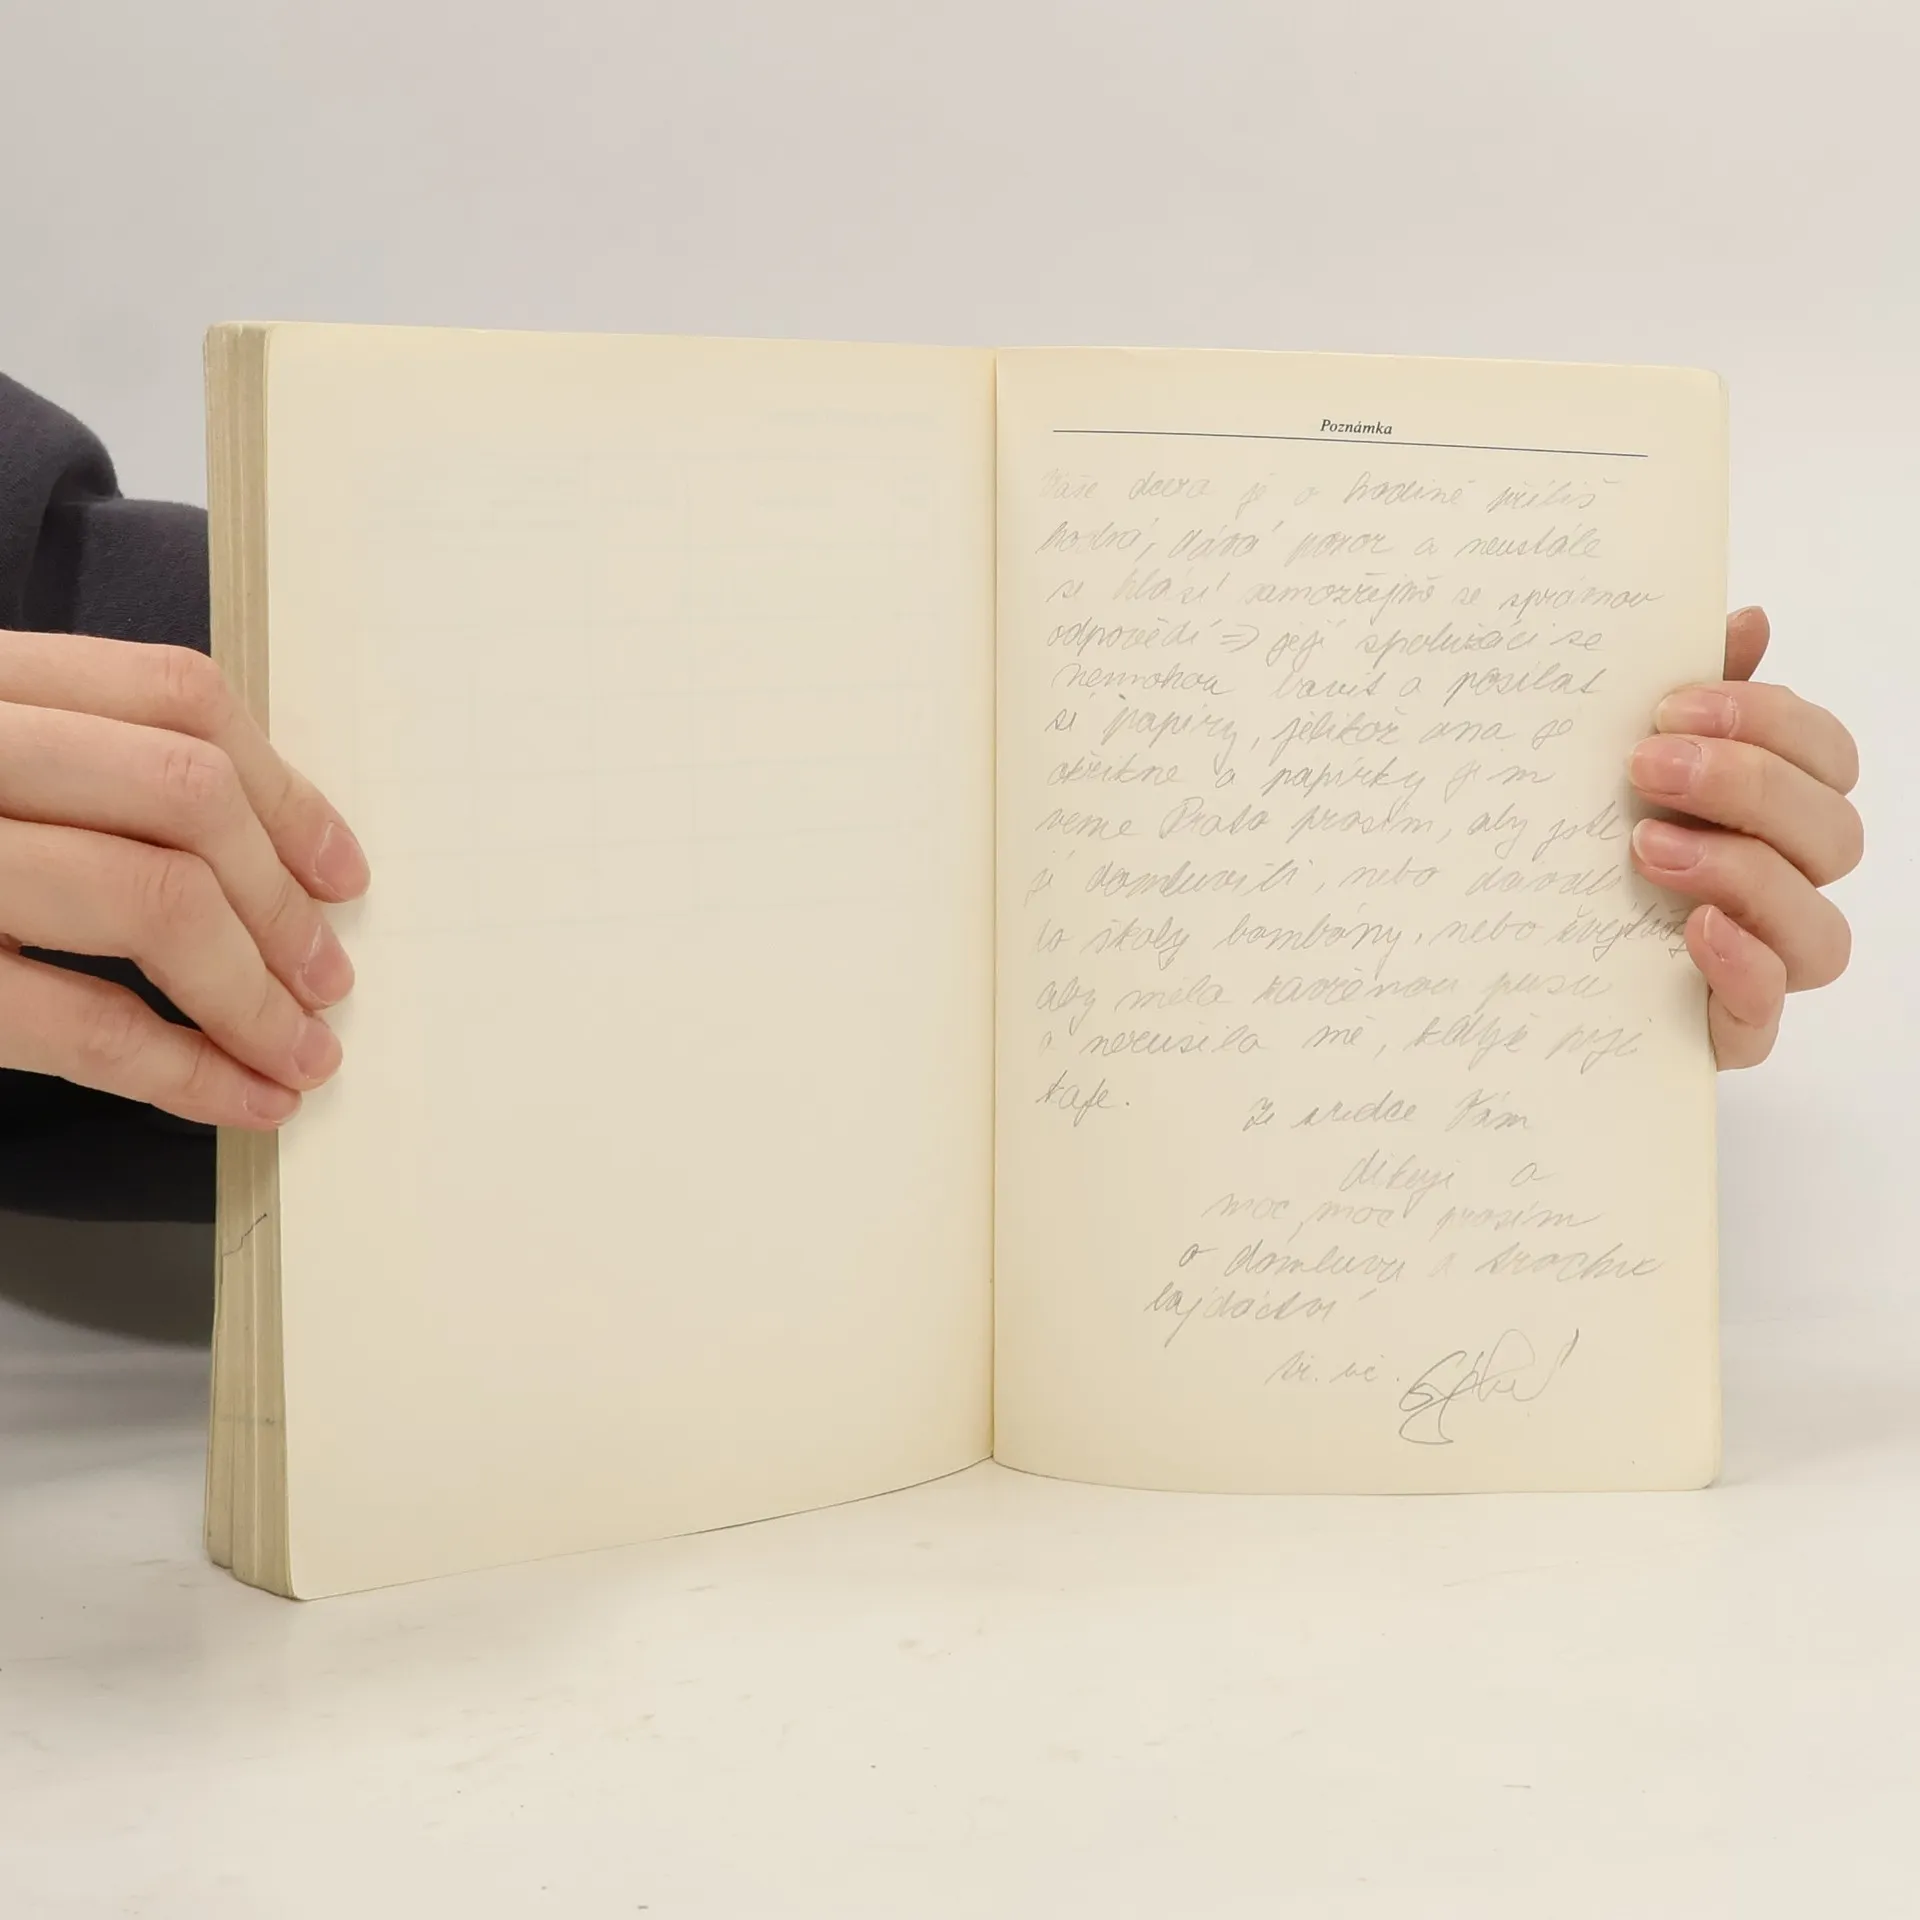 Poznámka
Vaše dcera je o hodině příliš
hodná, dává pozor a neustále
se hlásí samozřejmě se správnou
odpovědí => její spolužáci se
nemohou bavit a posílat
si papíry, jelikož ona je
okřikne a papírky jim
veme Proto prosím, aby jste
jí domluvili, nebo dávali
do školy bombóny, nebo žvejkačky
aby měla zavřenou pusu
a nerušila mě, když piji
kafe.
Ze srdce Vám
děkuji a
moc, moc prosím
o domluvu a trochu
lajdáctví
tř. uč.